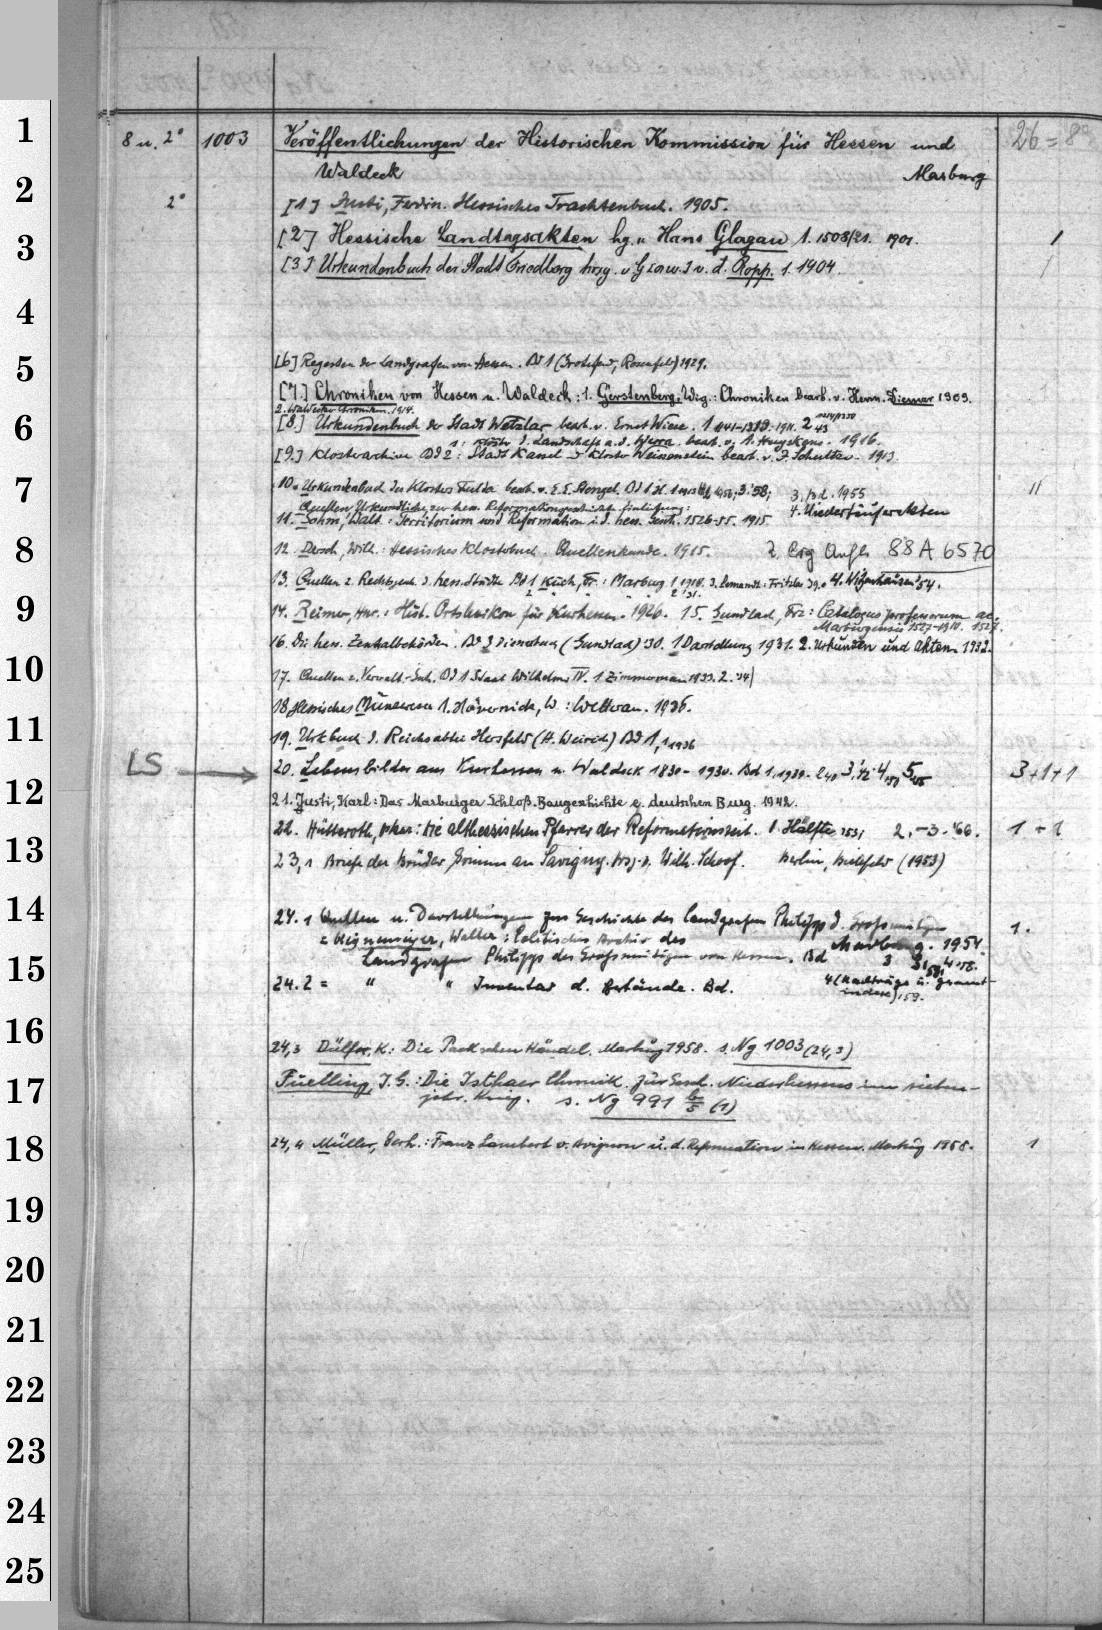 1
8 u. 2° 1003 Veröffentlichungen der Historischen Kommission für Hessen und 26 = 8°
Waldeck Marburg
2
2° [1] Justi, Ferdin. Hessisches Trachtenbuch. 1905.
3
[2] Hessische Landtagsakten hg. v. Hans Glagau 1. 1508/21. 1901. 1
[3] Urkundenbuch der Stadt Friedberg hrsg. v. G Graw. I v. d. Ropp. 1. 1904. 1
4
5
[6] Regesten der Landgrafen von Hessen. Bd 1 (Grotefend, Rosenfeld) 1929.
[7.] Chroniken von Hessen u. Waldeck: 1. Gerstenberg, Wig.: Chroniken bearb. v. Herm. Diemar 1909.
2. Waldecker Chroniken. 1914.
6
[8.] Urkundenbuch der Stadt Wetzlar bearb. v. Ernst Wiese. 1 1141-1350. 1911. 2 43
1: Klöster d. Landschaft a. d. Werra. bearb. v. A. Huyskens. 1916.
[9.] Klosterarchive Bd 2: Stadt Kassel u Kloster Weissenstein bearb. v. J. Schultze. 1913
7
10. Urkundenbuch des Klosters Fulda bearb. v. E. E. Stengel. Bd 1 H. 1 1913 3.'58; 3. Bd. 1955 11
Quellen Urkundliche zur hess. Reformationsgeschichte Einleitung: 4. Wiedertäuferakten
11. Sohm, Walt.: Territorium und Reformation i. d. hess. Gesch. 1526-55. 1915
8
12. Dersch, Wilh.: Hessisches Klosterbuch. Quellenkunde. 1915. 2. Erg Aufl. 88 A 6570
13. Quellen z. Rechtsgesch. d. hess. Städte Bd 1 Küch, Fr.: Marburg 1 1918. 3. Demandt: Fritzlar 39. 4. Witzenhausen '54.
2 2 '31.
9
14. Reimer, Hnr.: Hist. Ortslexikon für Kurhessen. 1926. 15. Gundlach, Frz: Catalogus professorum ac.
Marburgensis 1527-1910. 1927.
16. Die hess. Zentralbehörden. Bd 3 Dienerbuch (Gundlach) '30. 1 Darstellung 1931. 2. Urkunden und Akten 1932.
10
17. Quellen z. Verwalt.-Gesch. Bd 1 Staat Wilhelms IV. 1 Zimmermann 1933. 2. '34
18 Hessisches Münzwesen 1. Hävernick, W: Wetterau. 1936.
11
19. Urk.buch d. Reichsabtei Hersfeld (H. Weirich) Bd 1,1 1936
LS → 20. Lebensbilder aus Kurhessen u. Waldeck 1830-1930. Bd 1. 1939. 2 40 3,'42 4,50 5, 3+1+1
12
21. Justi, Karl: Das Marburger Schloß. Baugeschichte e. deutschen Burg. 1942.
22. Hütteroth, Oskar: Die althessischen Pfarrer der Reformationszeit. 1. Hälfte 1953; 2.-3. '66. 1 + 1
13
23,1 Briefe der Brüder Grimm an Savigny. hrsg. v. Wilh. Schoof. Berlin, Bielefeld (1953)
14
24. 1 Quellen u. Darstellungen zur Geschichte des Landgrafen Philipp d. Großmütigen 1.
= Heinemeyer, Walter: Politisches Archiv des Marburg. 1954.
15
Landgrafen Philipps des Großmütigen von Hessen. Bd 3
24.2 = " " Inventar d. Bestände. Bd. 4 (Nachträge u. Gesamt-
index) 159.
16
24,3 Dülfer, K.: Die Packschen Händel. Marburg 1958. s. Ng 1003 (24,3)
17
Fuelling, J. G.: Die Isthaer Chronik. Zur Gesch. Niederhessens im sieben-
jähr. Krieg. s. Ng 991 6/5 (1)
18
24,4 Müller, Gerh.: Franz Lambert v. Avignon u. d. Reformation in Hessen. Marburg 1958. 1
19
20
21
22
23
24
25